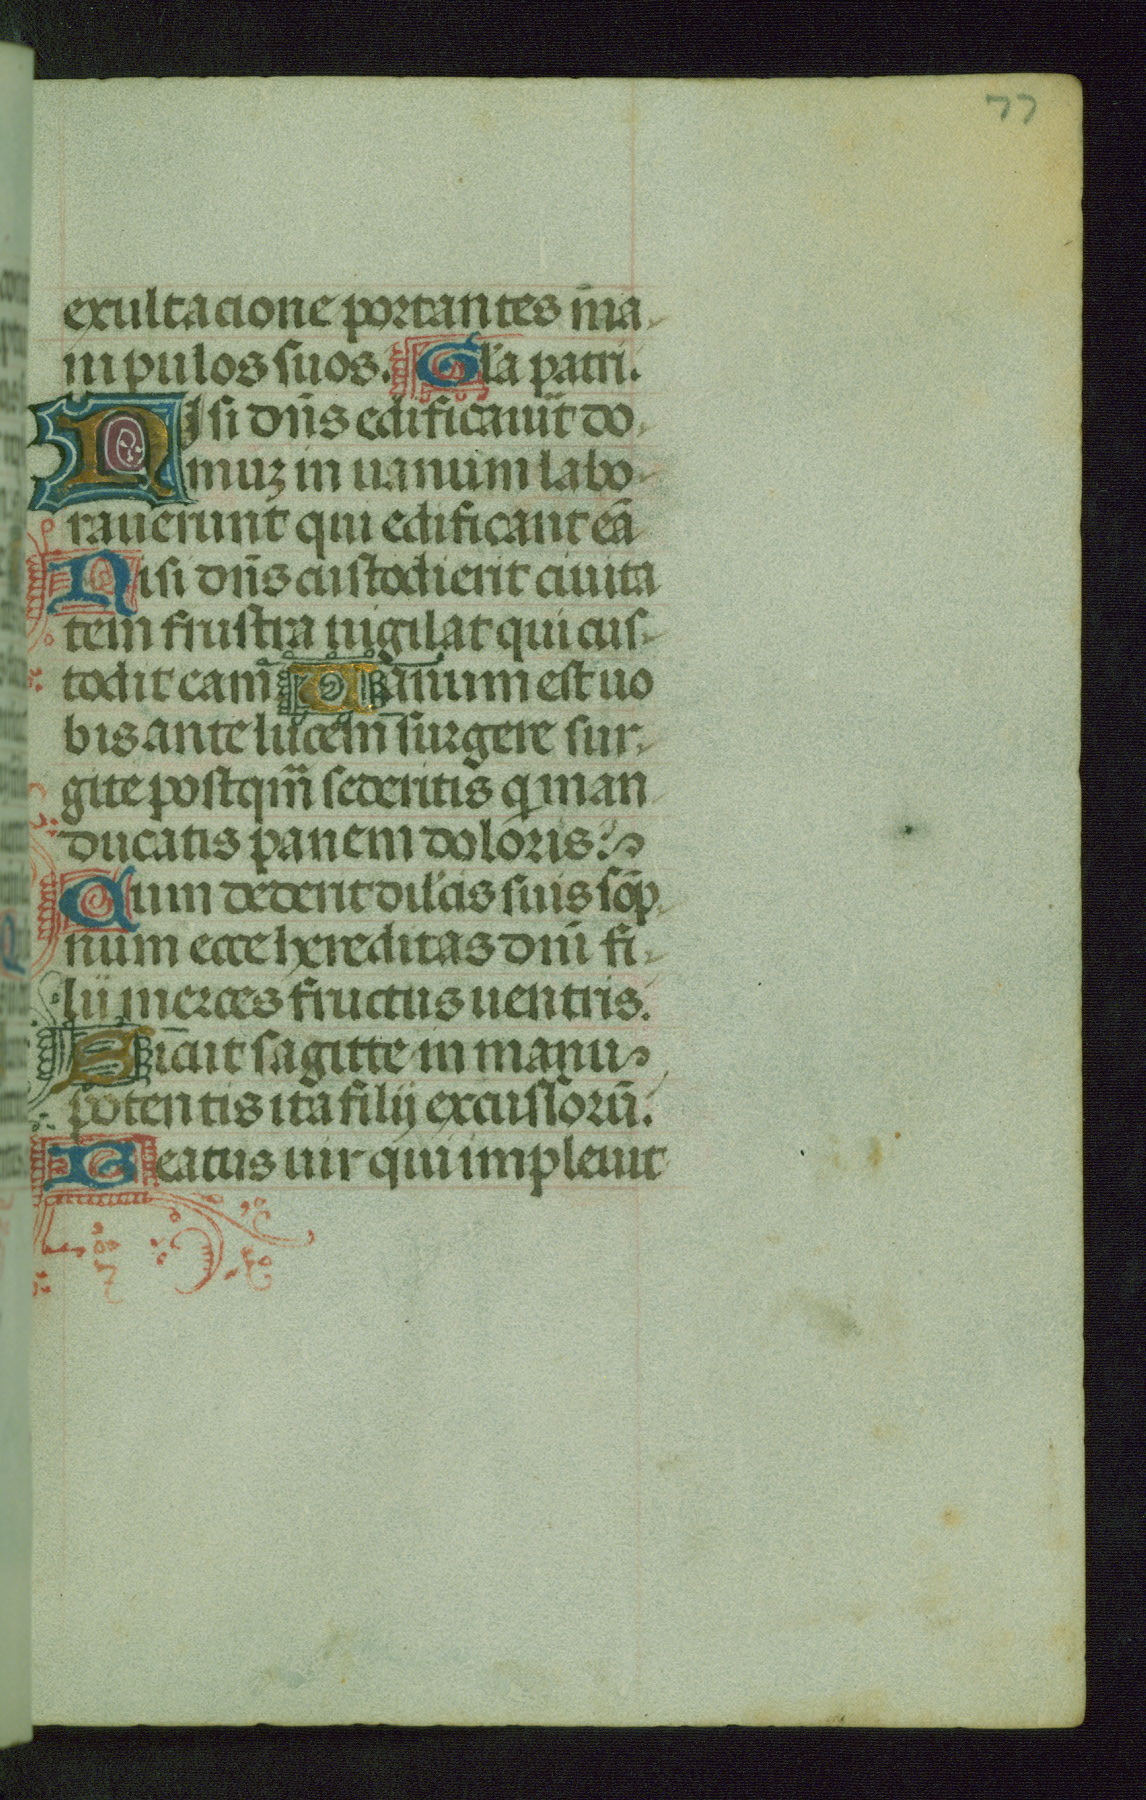 77
exultacione portantes ma
nipulos suos. Gl'a patri.
Nisi dn̄s edificauit do
muꝫ in uanum labo
rauerunt qui edificant eā
Nisi dn̄s custodierit ciuita
tem frustra uigilat qui cus
todit eam Uanum est uo
bis ante lucem surgere sur
gite postqm̄ sederitis q man
ducatis panem doloris.
Cum dederit dil'cis suis sop
num ecce hereditas dn̄i fi
lii merces fructus uentris.
Sicut sagitte in manu
potentis ita filij excussorū.
Beatus uir qui impleuit